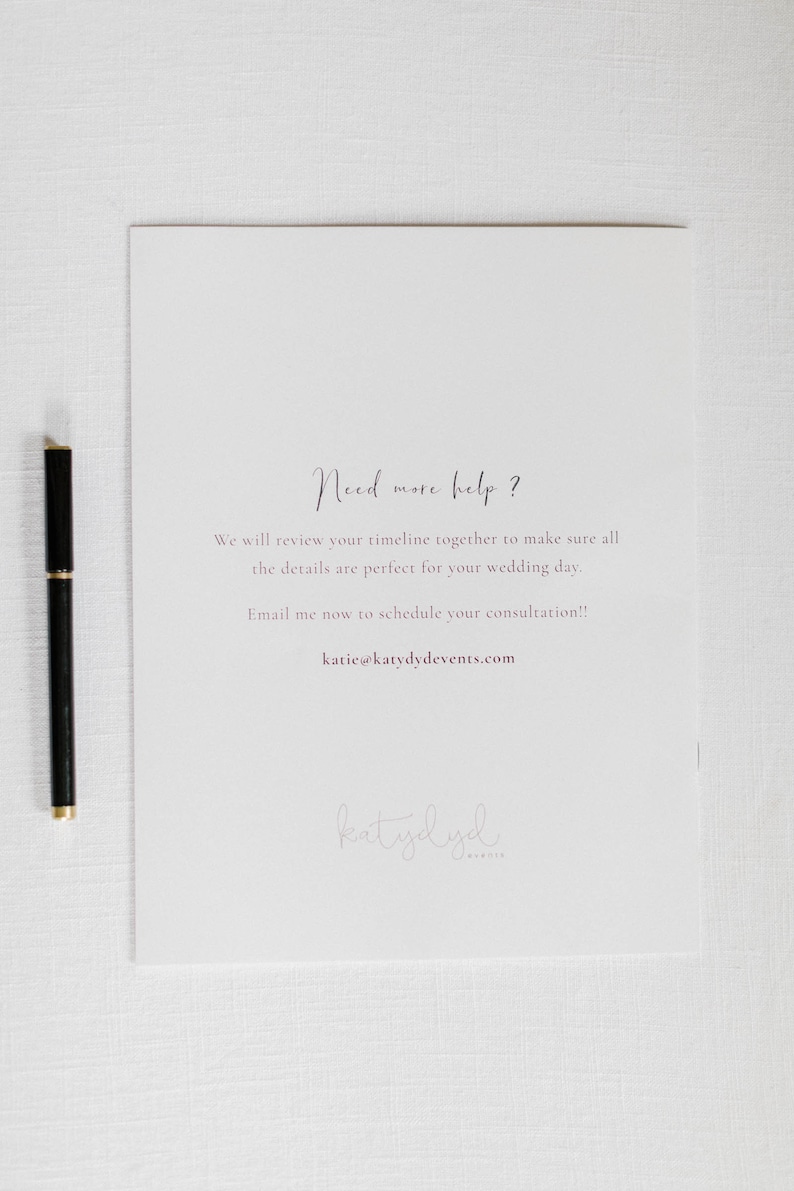 Need more help ?
We will review your timeline together to make sure all
the details are perfect for your wedding day.
Email me now to schedule your consultation!!
katie@katydydevents.com
katydyd
events